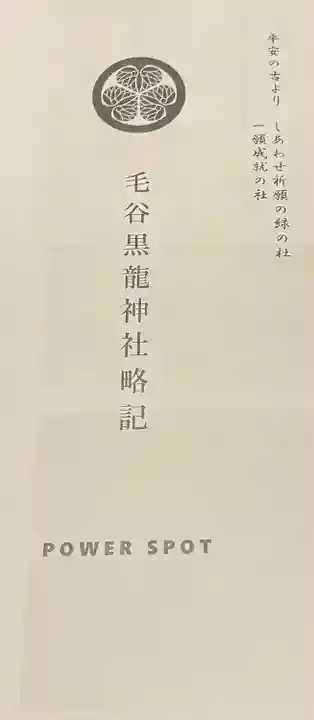 平安の古より　しあわせ祈願の緑の社
一願成就の社
毛谷黒龍神社略記
POWER SPOT